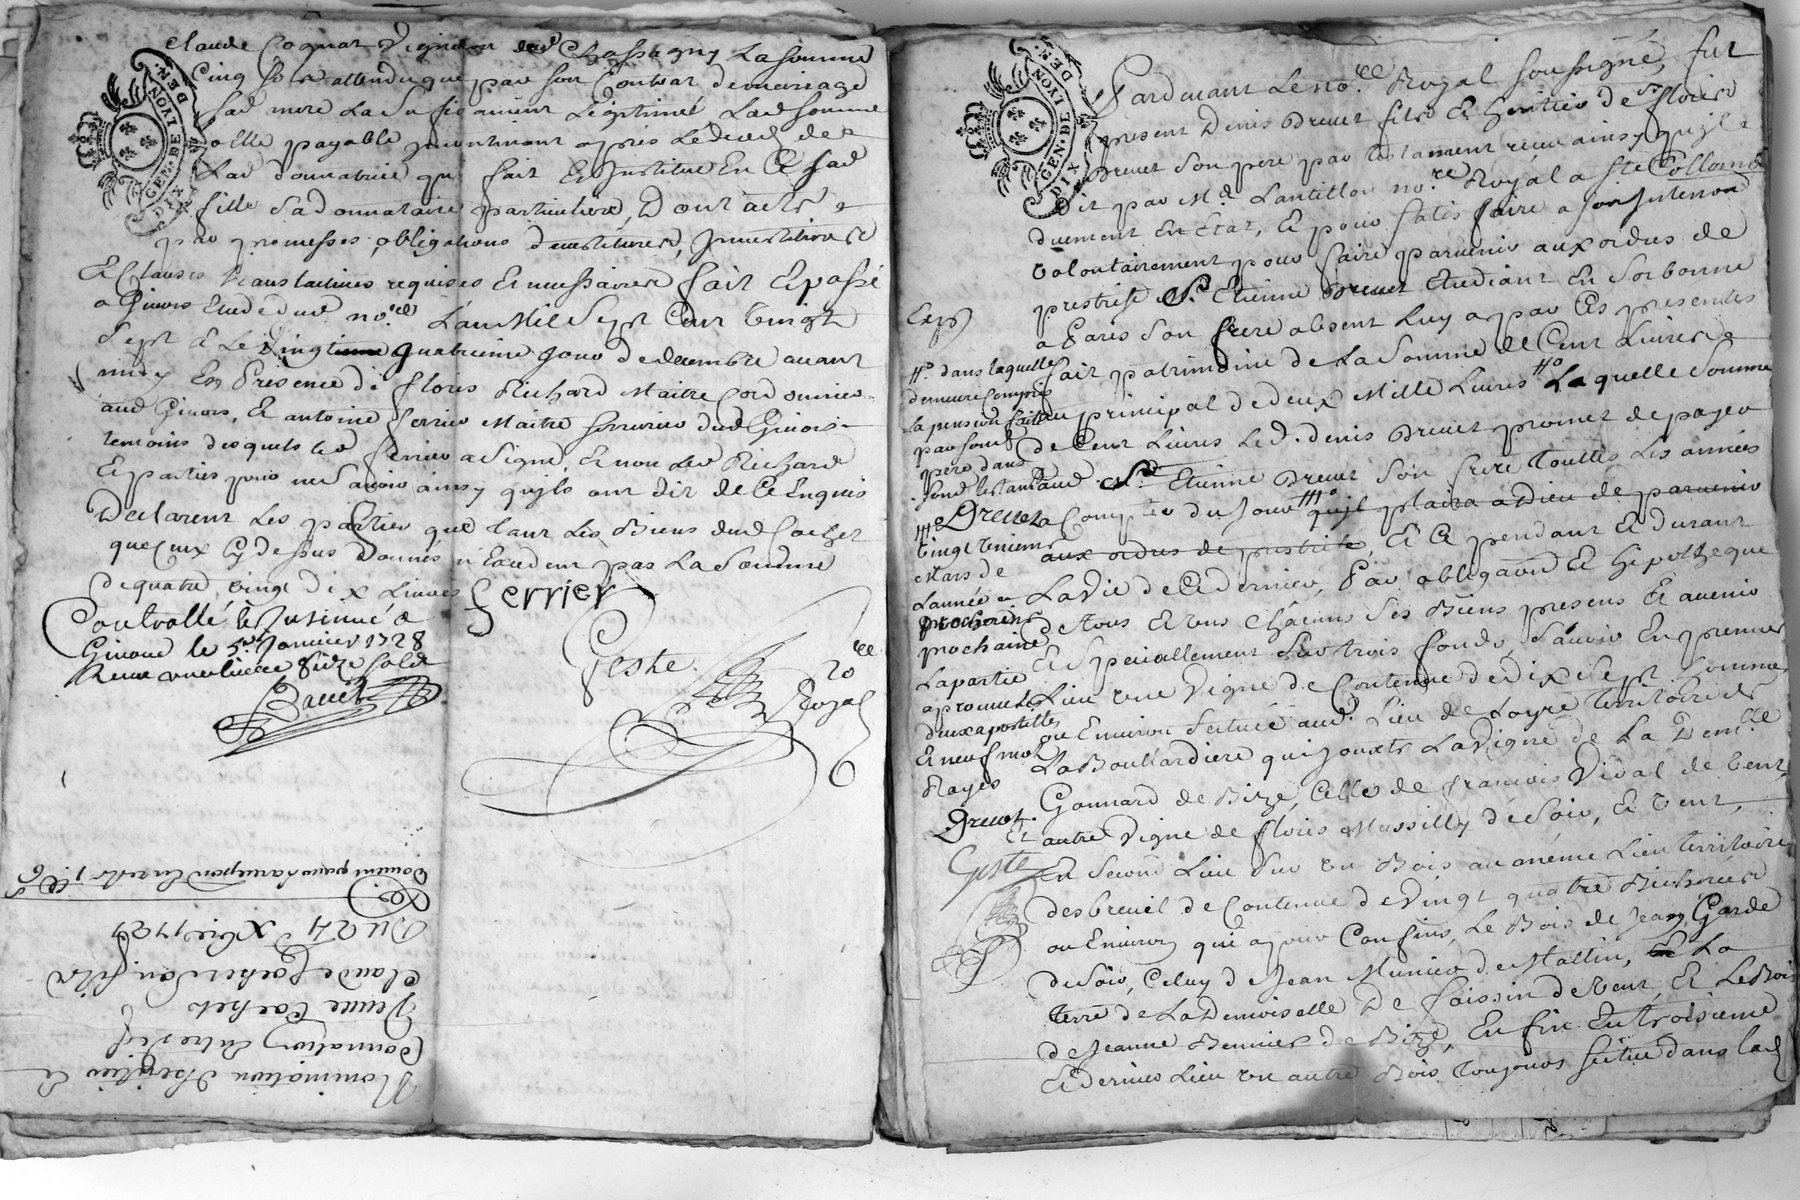 Claude Coquat Vigneron dud Chassagny La somme
Cinq sols attendu que par son Contrat de mariage
sad mere La suffisamment Legitimé Lad somme
a elle payable incontinant apres Le deceds de
Lad donnatrice qui fait Et Institue En Ce sad
fille sa donnataire particuliere, Dont acte
par promesses, obligations devestitures, Investitures
Et Clauses translatives requises Et necessaires fait Et passé
a Givors Etude dud no.re L'an Mil Sept Cent Vingt
Sept Et Le Vingt quatrieme jour de decembre avant
midy En Presence de floris Richard Maitre Cordonnier
aud Givors, Et antoine ferrier Maitre serrurier dud Givors
temoins desquels led ferrier a signé, Et non Led Richard
Et parties pour ne sçavoir ainsy quils ont dit de Ce Enquis
Declarent Les parties que tant Les Biens dud Cochet
que Ceux Cy dessus Donnés n'Excedent pas La Somme
de quatre vingt dix Livres
ferrier
Controllé & Insinué a
Givors le 5e Janvier 1728
Reçu une livre seize sols
Geste
no.re
Royal
DIX
GEN. DE LYON
DEN.
Nomination d'heritier Et
donnation Entre vif
Claude Cochet son fils
Du 24 Xbre 1727
Pardevant Le no.re Royal soussigné, fut
present Denis Drevet fils Et heritier de sr floris
Drevet Son pere par testament receu ainsy qu'il
dit par Mr. Lantillon no.re Royal a Ste Collombe
duement En Etat, Et pour satisfaire a son Intention
Volontairement pour faire parvenir aux ordres de
prestrise Sr. Etienne Drevet Etudiant En Sorbonne
a Paris Son frere absent Luy a par Ces presentes
fait patrimoine de La Somme de Cent Livres
au principal de deux Mille Livres #o Laquelle Somme
de Cent Livres Led. denis Drevet promet de payer
aud. Sr. Etienne Drevet Son frere Touttes Les années
a Compter du Jour ##o quil plaira a Dieu de parvenir
aux ordres de prestrise, Et Ce pendant Et durant
La Vie de Ce dernier, Par obligaon Et hipotheque
de tous Et uns Chacuns Ses Biens presens Et avenir
Et Speciallement Sur trois fonds, Savoir En premier
Lieu une Vigne de Contenue de dix Sept hommes
ou Environ Scituée aud. Lieu de Loyre territoire de
La Bouliardiere qui jouxte La Vigne de La Demlle
Gonnard de Bize, Celle de francois Vidal de Vent
Et autre Vigne de floris Mussilly de Soir, Et Vent,
En Second Lieu Sur un Bois au méme Lieu territoire
des breuil de Contenue de Vingt quatre Bicherées
ou Environ qui a pour Confins, Le Bois de Jean Garde
de Soir, Celuy de Jean Munier de Mattin, La
terre de La Demoiselle De faissin de Vent, Et Le Bois
de Jeanne Bonnier de Bize, En fin En troisieme
Et dernier Lieu un autre Bois toujours Scitué dans Lad
Exp
#o dans laquelle
demeure Compris
La pension faite
par son
pere dans
sond testament
Drevet
##o
Vingt
Mars de
L'année
prochaine
La partie
approuve Les
deux apostilles
Et neuf mots
Rayés
Drevet
Geste
DIX
GEN. DE LYON
DEN.